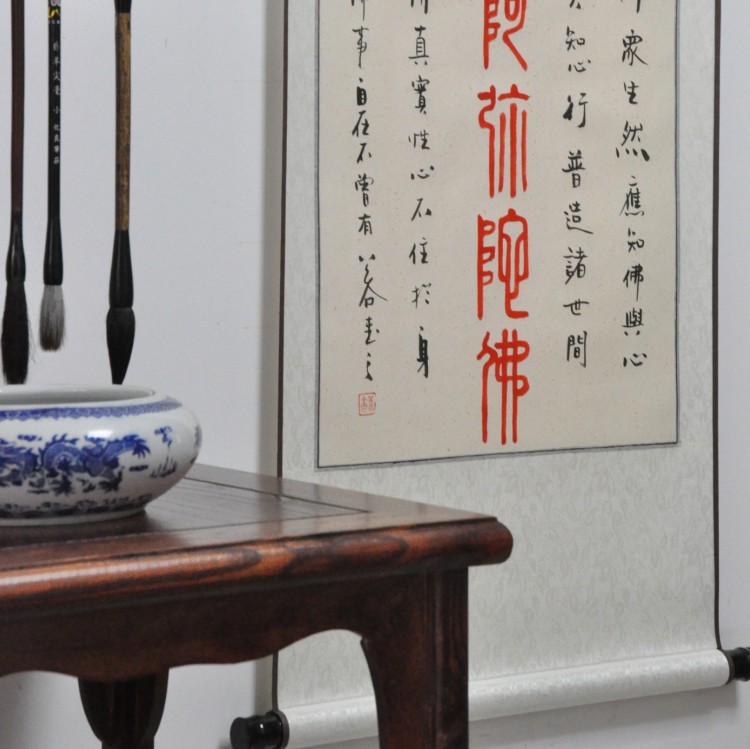 眾生然應知佛與心
知心行普造諸世間
阿弥陀佛
真實性心不住於身
事自在不曾有